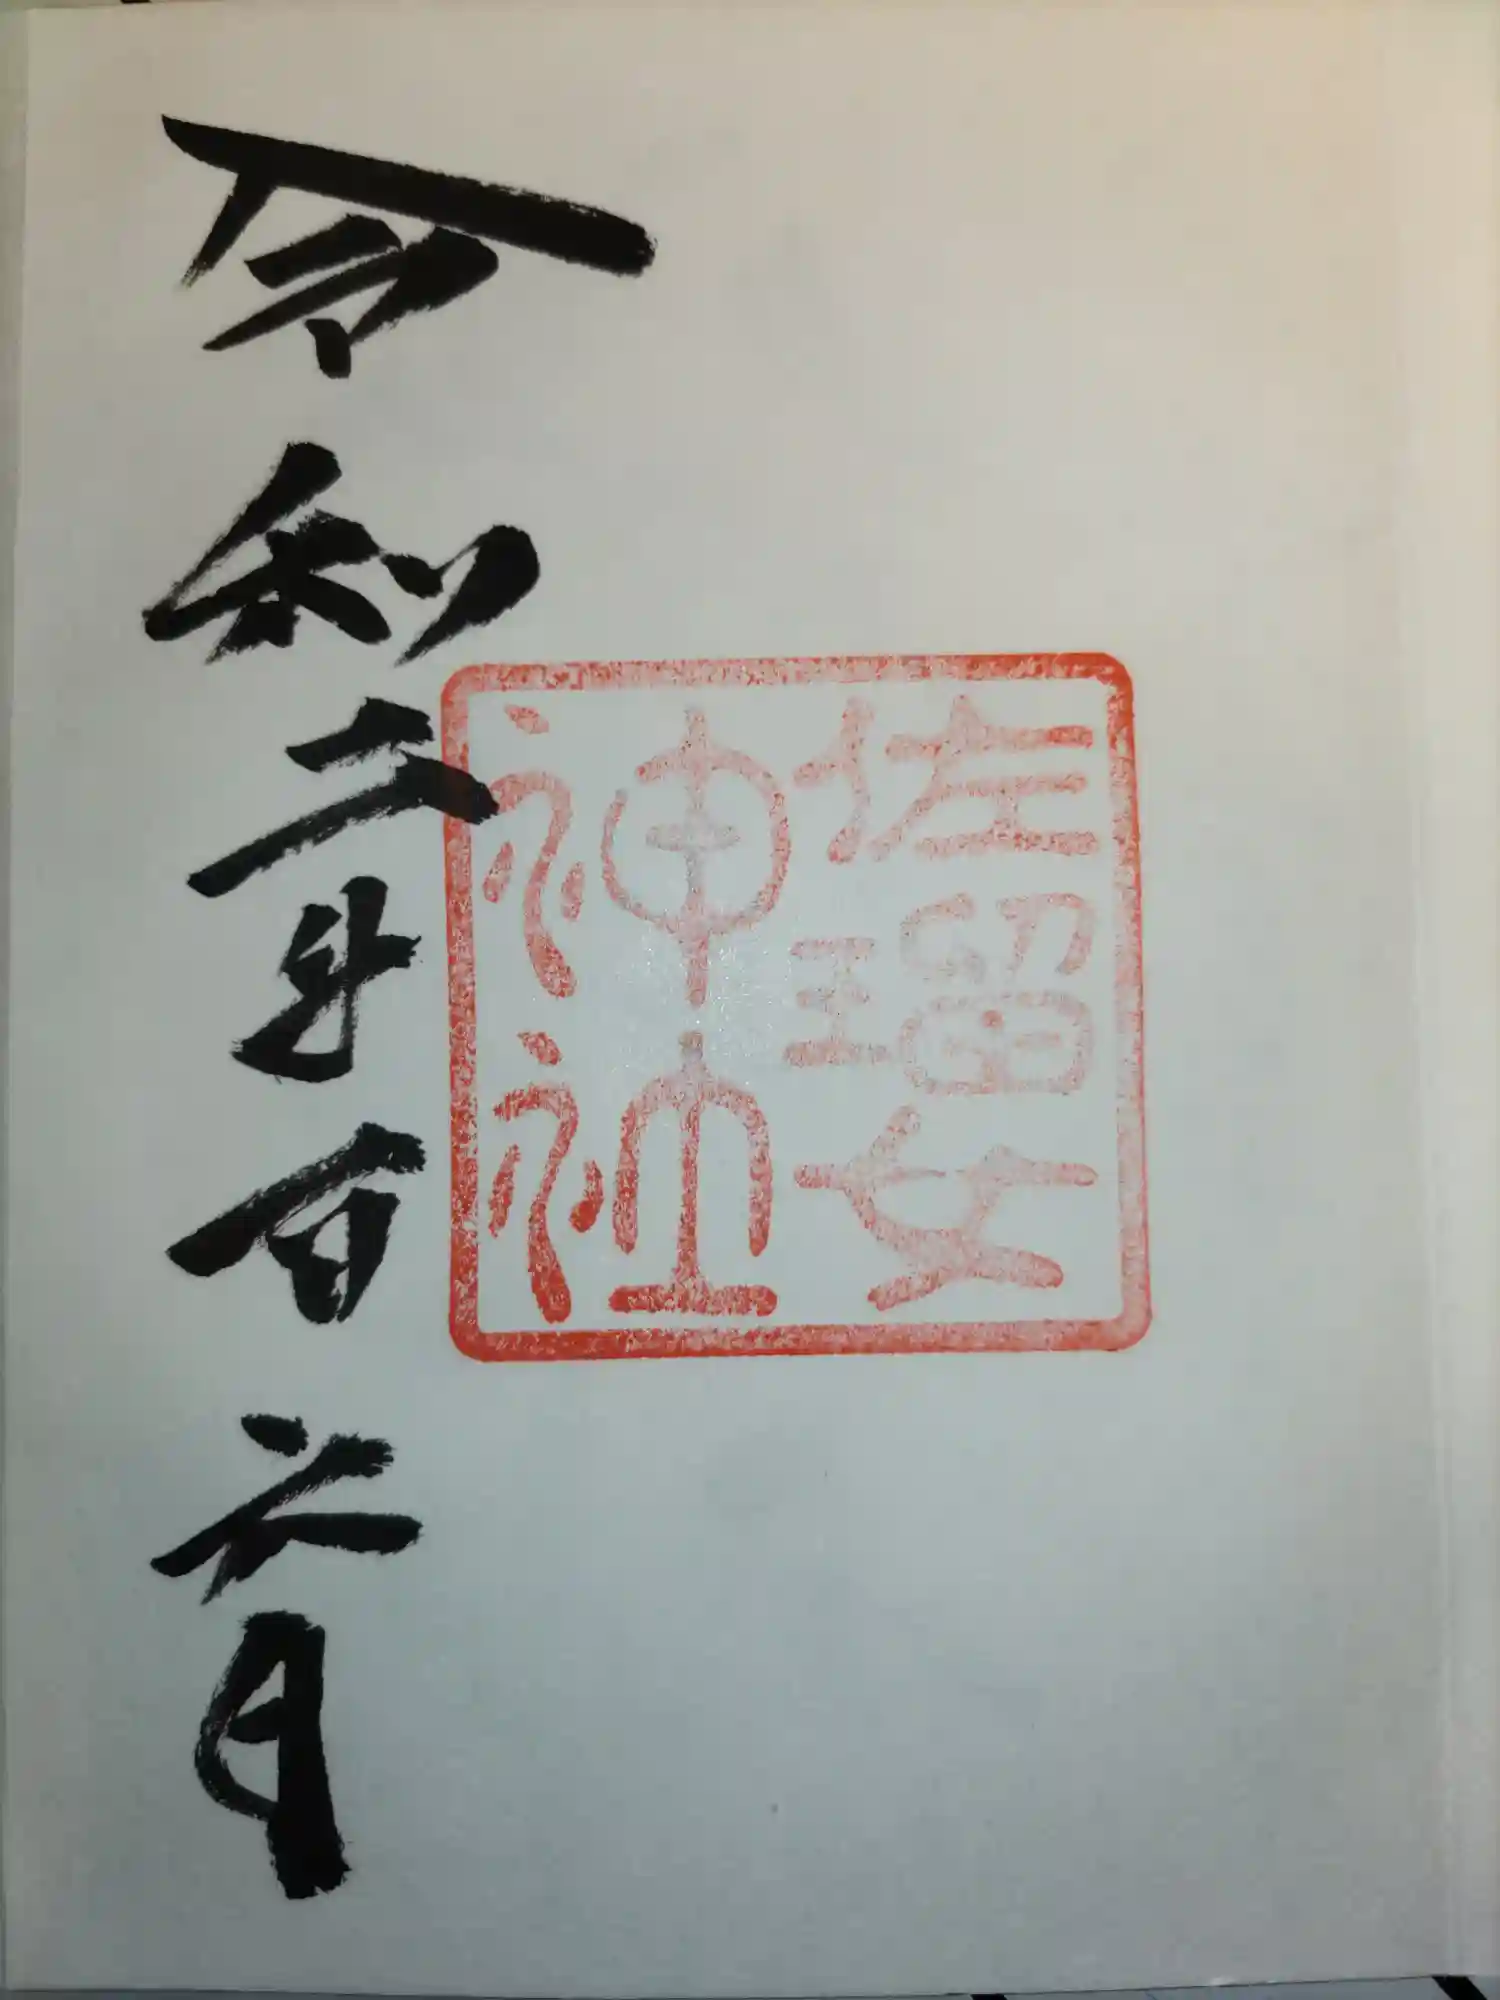 佐瑠女
神社
令和二年一月六日